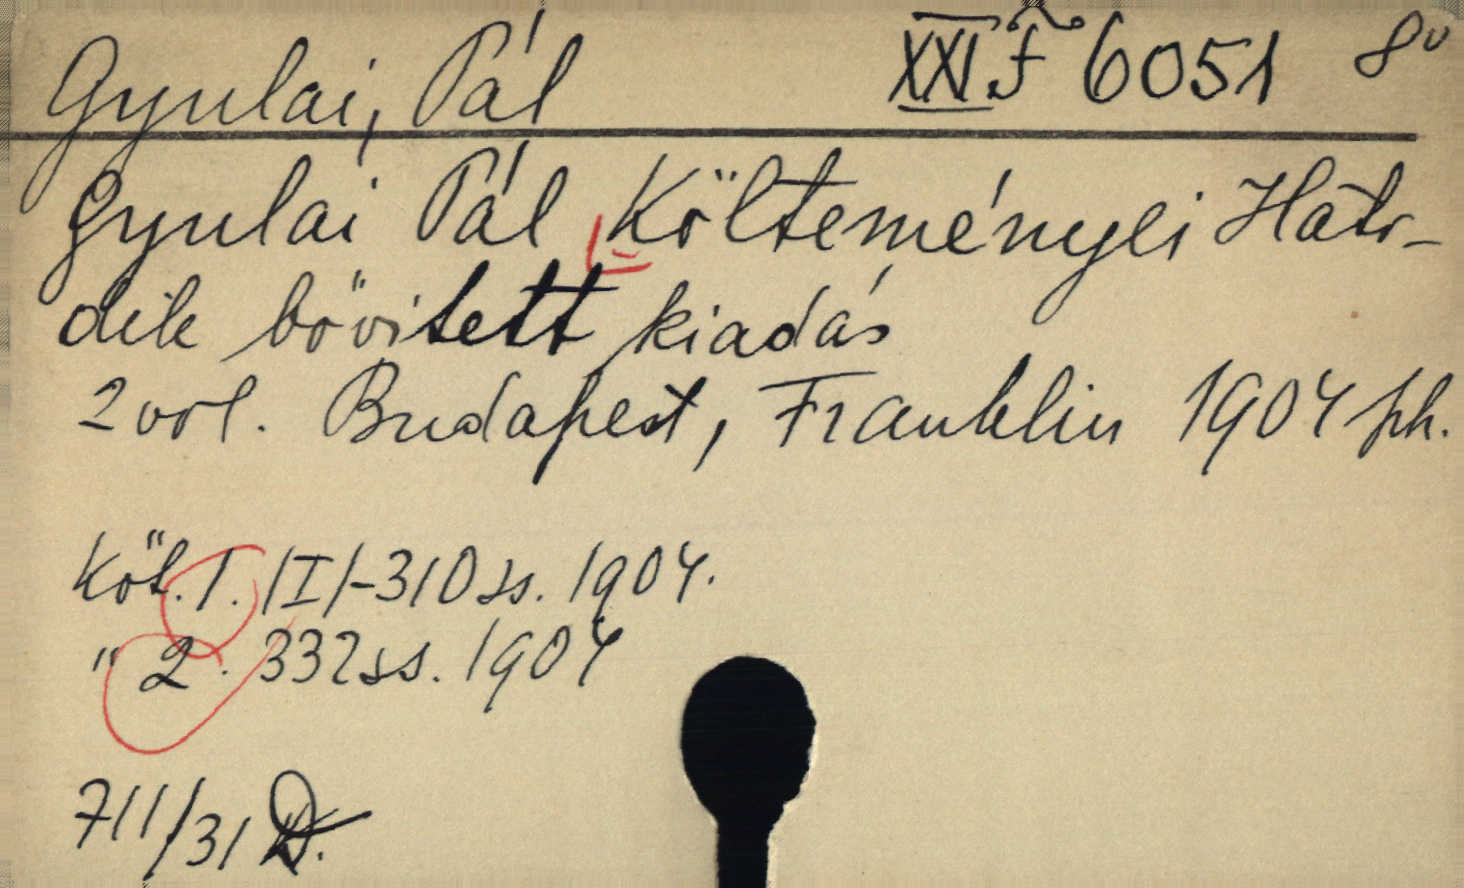 Gyulai, Pál XXI.F 6051 8º
Gyulai Pál Költeményei Hato-
dik bövitett kiadás
2 vol. Budapest, Franklin 1904 ph.
Köt. 1. /I/-310 ss. 1904.
" 2. 332 ss. 1904
711/31